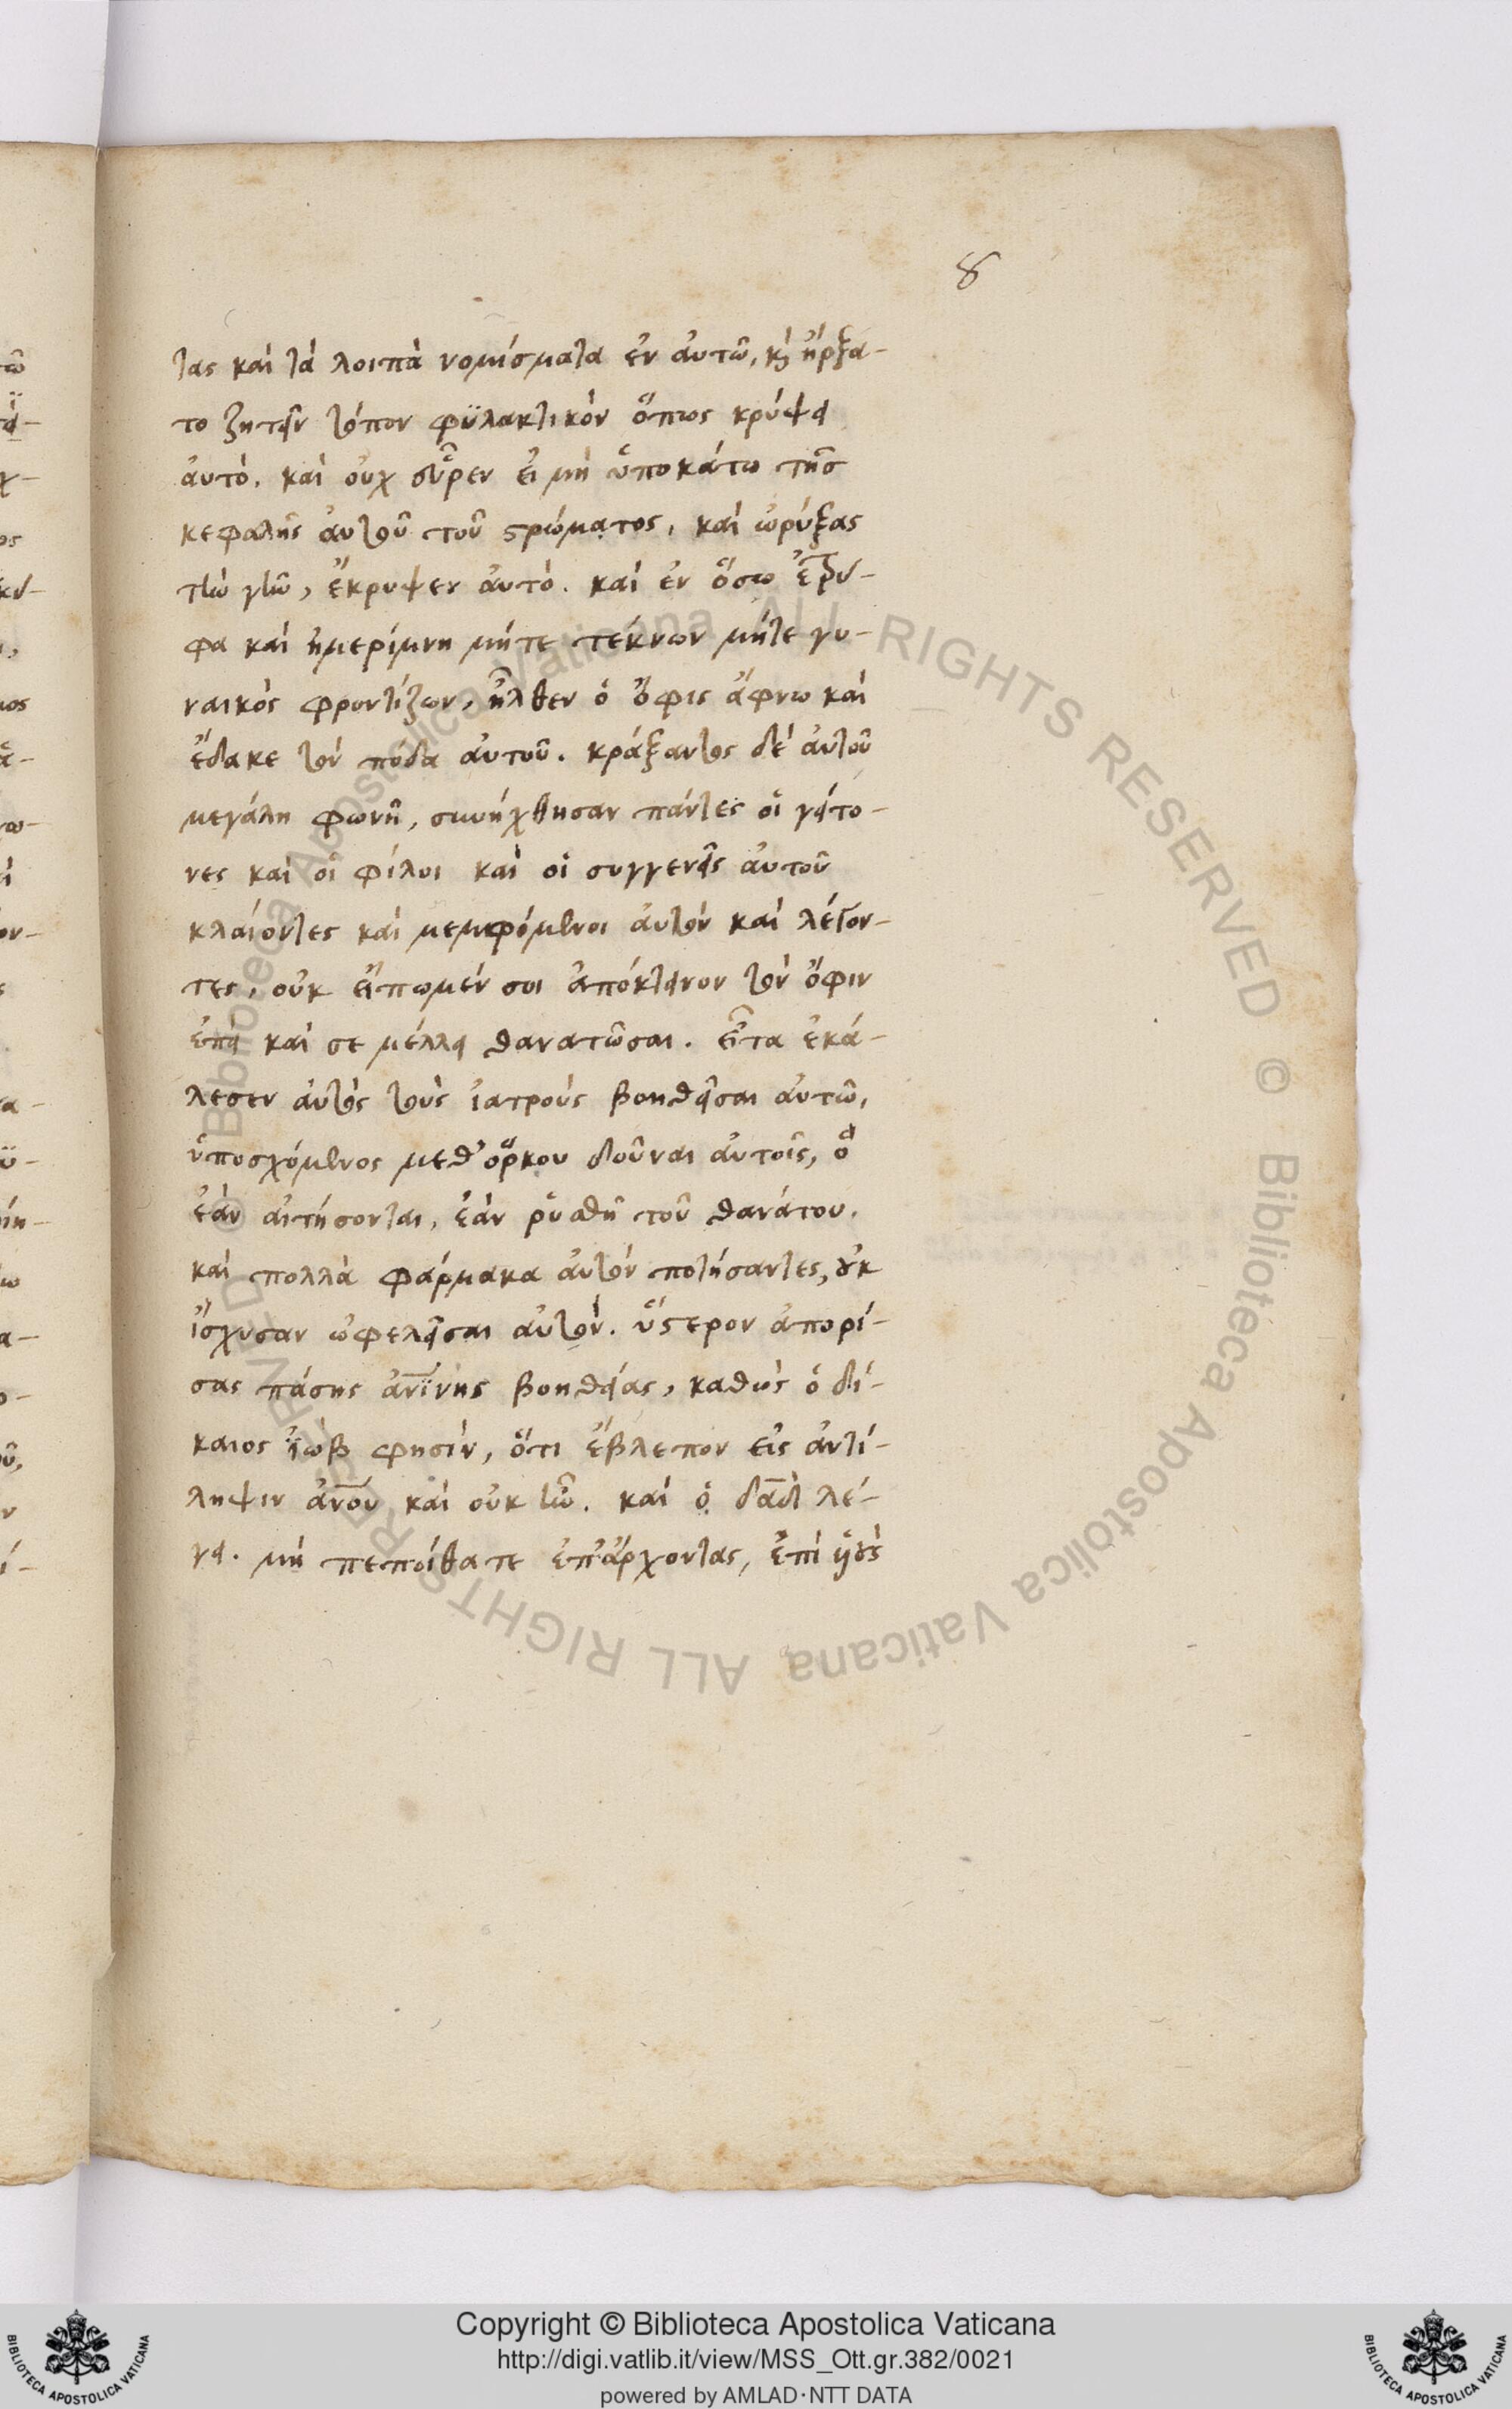 8
τας καὶ τὰ λοιπὰ νομίσματα ἐν αὐτῶ, κὶ ἤρξα-
το ζητεῖν τόπον φϋλακτικὸν ὅπως κρύψει
αὐτό. καὶ οὐχ εὗρεν εἰ μὴ ὑποκάτω τῆσ
κεφαλῆς αὐτοῦ τοῦ στρώματος, καὶ ὠρύξας
τὴν γῆν, ἔκρυψεν αὐτό. καὶ ἐν ὅσω ἐτρύ-
φα καὶ ἠμερίμνη μήτε τέκνων μήτε γυ-
ναικὸς φροντίζων, ἦλθεν ὁ ὄφις ἄφνω καὶ
ἔδακε τὸν πόδα αὐτοῦ. κράξαντος δὲ αὐτοῦ
μεγάλη φωνῆ, συνήχθησαν πάντες οἱ γείτο-
νες καὶ οἱ φίλοι καὶ οἱ συγγενεῖς αὐτοῦ
κλαίοντες καὶ μεμφόμενοι αὐτὸν καὶ λέγον-
τες, οὐκ εἴπωμέν σοι ἀπόκτεινον τὸν ὄφιν
ἐπεὶ καὶ σε μέλλει θανατῶσαι. εἶτα ἐκά-
λεσεν αὐτὸς τοὺς ἰατροὺς βοηθεῖσαι αὐτῶ,
ὑποσχόμενος μεθ' ὅρκου δοῦναι αὐτοῖς, ὃ
ἐὰν αἰτήσονται, ἐὰν ῥυσθῆ τοῦ θανάτου.
καὶ πολλὰ φάρμακα αὐτὸν ποτήσαντες, οὐκ
ἴσχυσαν ὠφελεῖσαι αὐτόν. ὕστερον ἀπορί-
σας πάσης ἀνΐνης βοηθείας, καθὼς ὁ δί-
καιος ἰὼβ φησὶν, ὅτι ἔβλεπον εἰς ἀντί-
ληψιν ἀνου καὶ οὐκ ἦν. καὶ ὁ δαδ λέ-
γει. μὴ πεποίθατε ἐπ' ἄρχοντας, ἐπὶ υἱοὺς
Copyright © Biblioteca Apostolica Vaticana
http://digi.vatlib.it/view/MSS_Ott.gr.382/0021
powered by AMLAD·NTT DATA